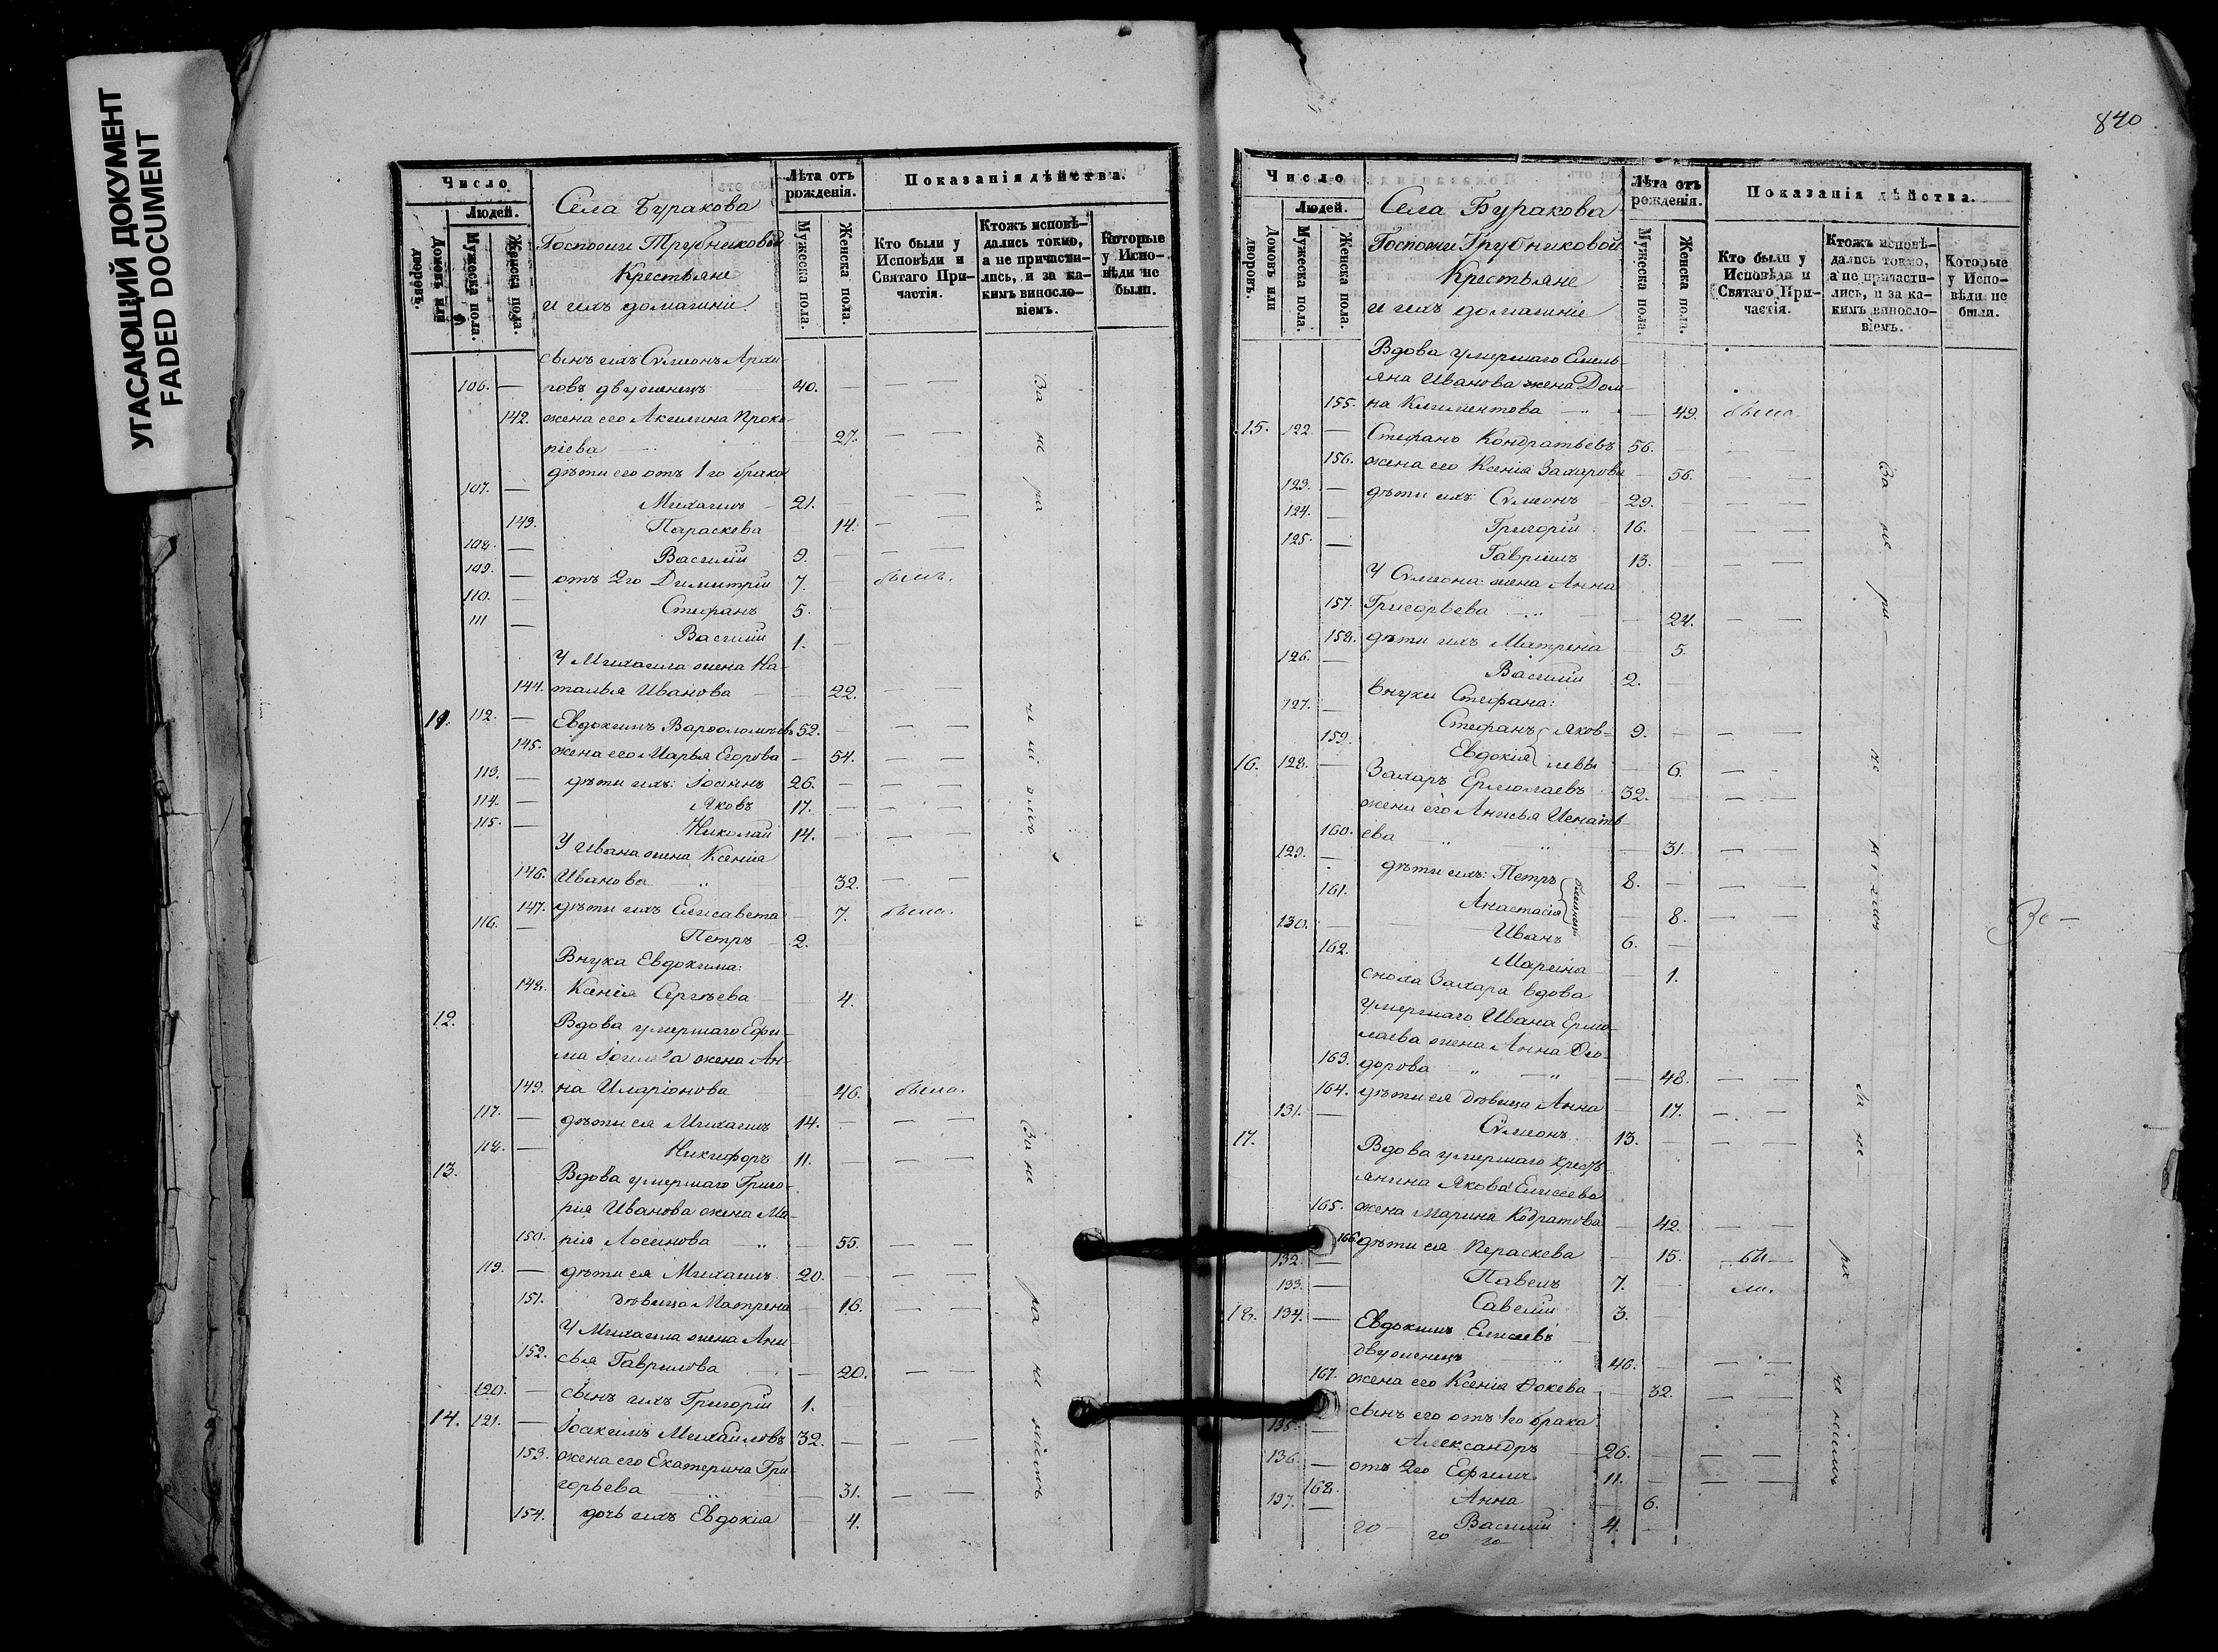 УГАСАЮЩИЙ ДОКУМЕНТ
FADED DOCUMENT
Число
Людей.
Домовъ или дворовъ.
Мужеска пола.
Женска пола.
Села Буракова
Госпожи Трубниковой
Крестьяне
и ихъ домашніе.
Лѣта отъ рожденія.
Мужеска пола.
Женска пола.
Показанія дѣйства.
Кто были у Исповѣди и Святаго Причастія.
Ктожъ исповѣдались токмо, а не причастились, и за какимъ винословіемъ.
Которые у Исповѣди не были.
сынъ ихъ Сѵмеонъ Архи-
106. — повъ двуженецъ 40. —
142. жена его Акилина Проко-
піева 27.
дѣти его отъ 1го брака
107. — Михаилъ 21.
143. Параскева 14.
108. — Василій 9.
109. — отъ 2го Димитрій 7. — былъ.
110. — Стефанъ 5.
111 — Василій 1. —
У Михаила жена На-
144. талья Иванова 22.
11. 112. — Евдокимъ Варѳоломѣевъ 52. —
145. жена его Марья Егорова — 54.
113. — дѣти ихъ: Іоаннъ 26. —
114. — Яковъ 17. —
115. — Николай 14. —
У Ивана жена Ксенія
146. Иванова 32.
147. дѣти ихъ Елисавета 7. была.
116. — Петръ 2.
Внука Евдокима:
148. Ксенія Сергѣева 4.
12. Вдова умершаго Ефи-
ма жена Ан-
149. на Иларіонова 46. была.
117. — дѣти ея Михаилъ 14. —
118. — Никифоръ 11. —
13. Вдова умершаго Григо-
рія Иванова жена Ма-
150. рія Логинова — 55.
119. — дѣти ея Михаилъ. 20. —
151. дѣвица Матрена — 16.
У Михаила жена Ани-
152. сья Гаврилова — 20.
120. — сынъ ихъ Григорій 1.
14. 121. — Іоакимъ Михайловъ 32. —
153. жена его Екатерина Гри-
горьева — 31.
154. дочь ихъ Евдокія — 4.
840
Число
Людей.
Домовъ или дворовъ.
Мужеска пола.
Женска пола.
Села Буракова
Госпожи Трубниковой
Крестьяне
и ихъ домашніе
Лѣта отъ рожденія.
Мужеска пола.
Женска пола.
Показанія дѣйства.
Кто были у Исповѣди и Святаго Причастія.
Ктожъ исповѣдались токмо, а не причастились, и за какимъ винословіемъ.
Которые у Исповѣди не были.
Вдова умершаго Емель-
яна Иванова жена Дом-
155. на Климентова — 49. была.
15. 122 — Стефанъ Кондратьевъ 56.
156. жена его Ксенія Захарова 56.
123. — дѣти ихъ: Сѵмеонъ 29.
124. — Григорій 16.
125. — Гавріилъ 13. —
У Сѵмеона жена Анна
157. Григорьева — 24.
158. дѣти ихъ Матрена 5.
126. — Василій 2. —
внуки Стефана:
127. — Стефанъ Яков- 9. —
159. Евдокія левы 6.
16. 128. — Захаръ Ермолаевъ 32. —
жена его Анисья Игнать-
160. ева — 31.
129. — дѣти ихъ: Петръ 8. —
161. Анастасія близнецы 8.
130. — Иванъ 6. —
162. Марѳина 1.
сноха Захара вдова
умершаго Ивана Ермо-
лаева жена Анна Ѳео-
163. дорова — 48.
164. дѣти ея дѣвица Анна 17.
131. — Сѵмеонъ 13. —
17. Вдова умершаго кресть-
янина Якова Елисеева
165. жена Марина Кодратова — 42.
166. дѣти ея Пераскева — 15. — бы —
132. — Павелъ 7. — ли.
133. — Савелій 3.
18. 134. — Евдокимъ Елисеевъ
двуженецъ 46. —
167. жена его Ксенія Фокева — 32.
сынъ его отъ 1го брака
135. — Александръ 26. —
136. — отъ 2го Ефимъ 11. —
168. Анна 6.
137. — Василій 4. —